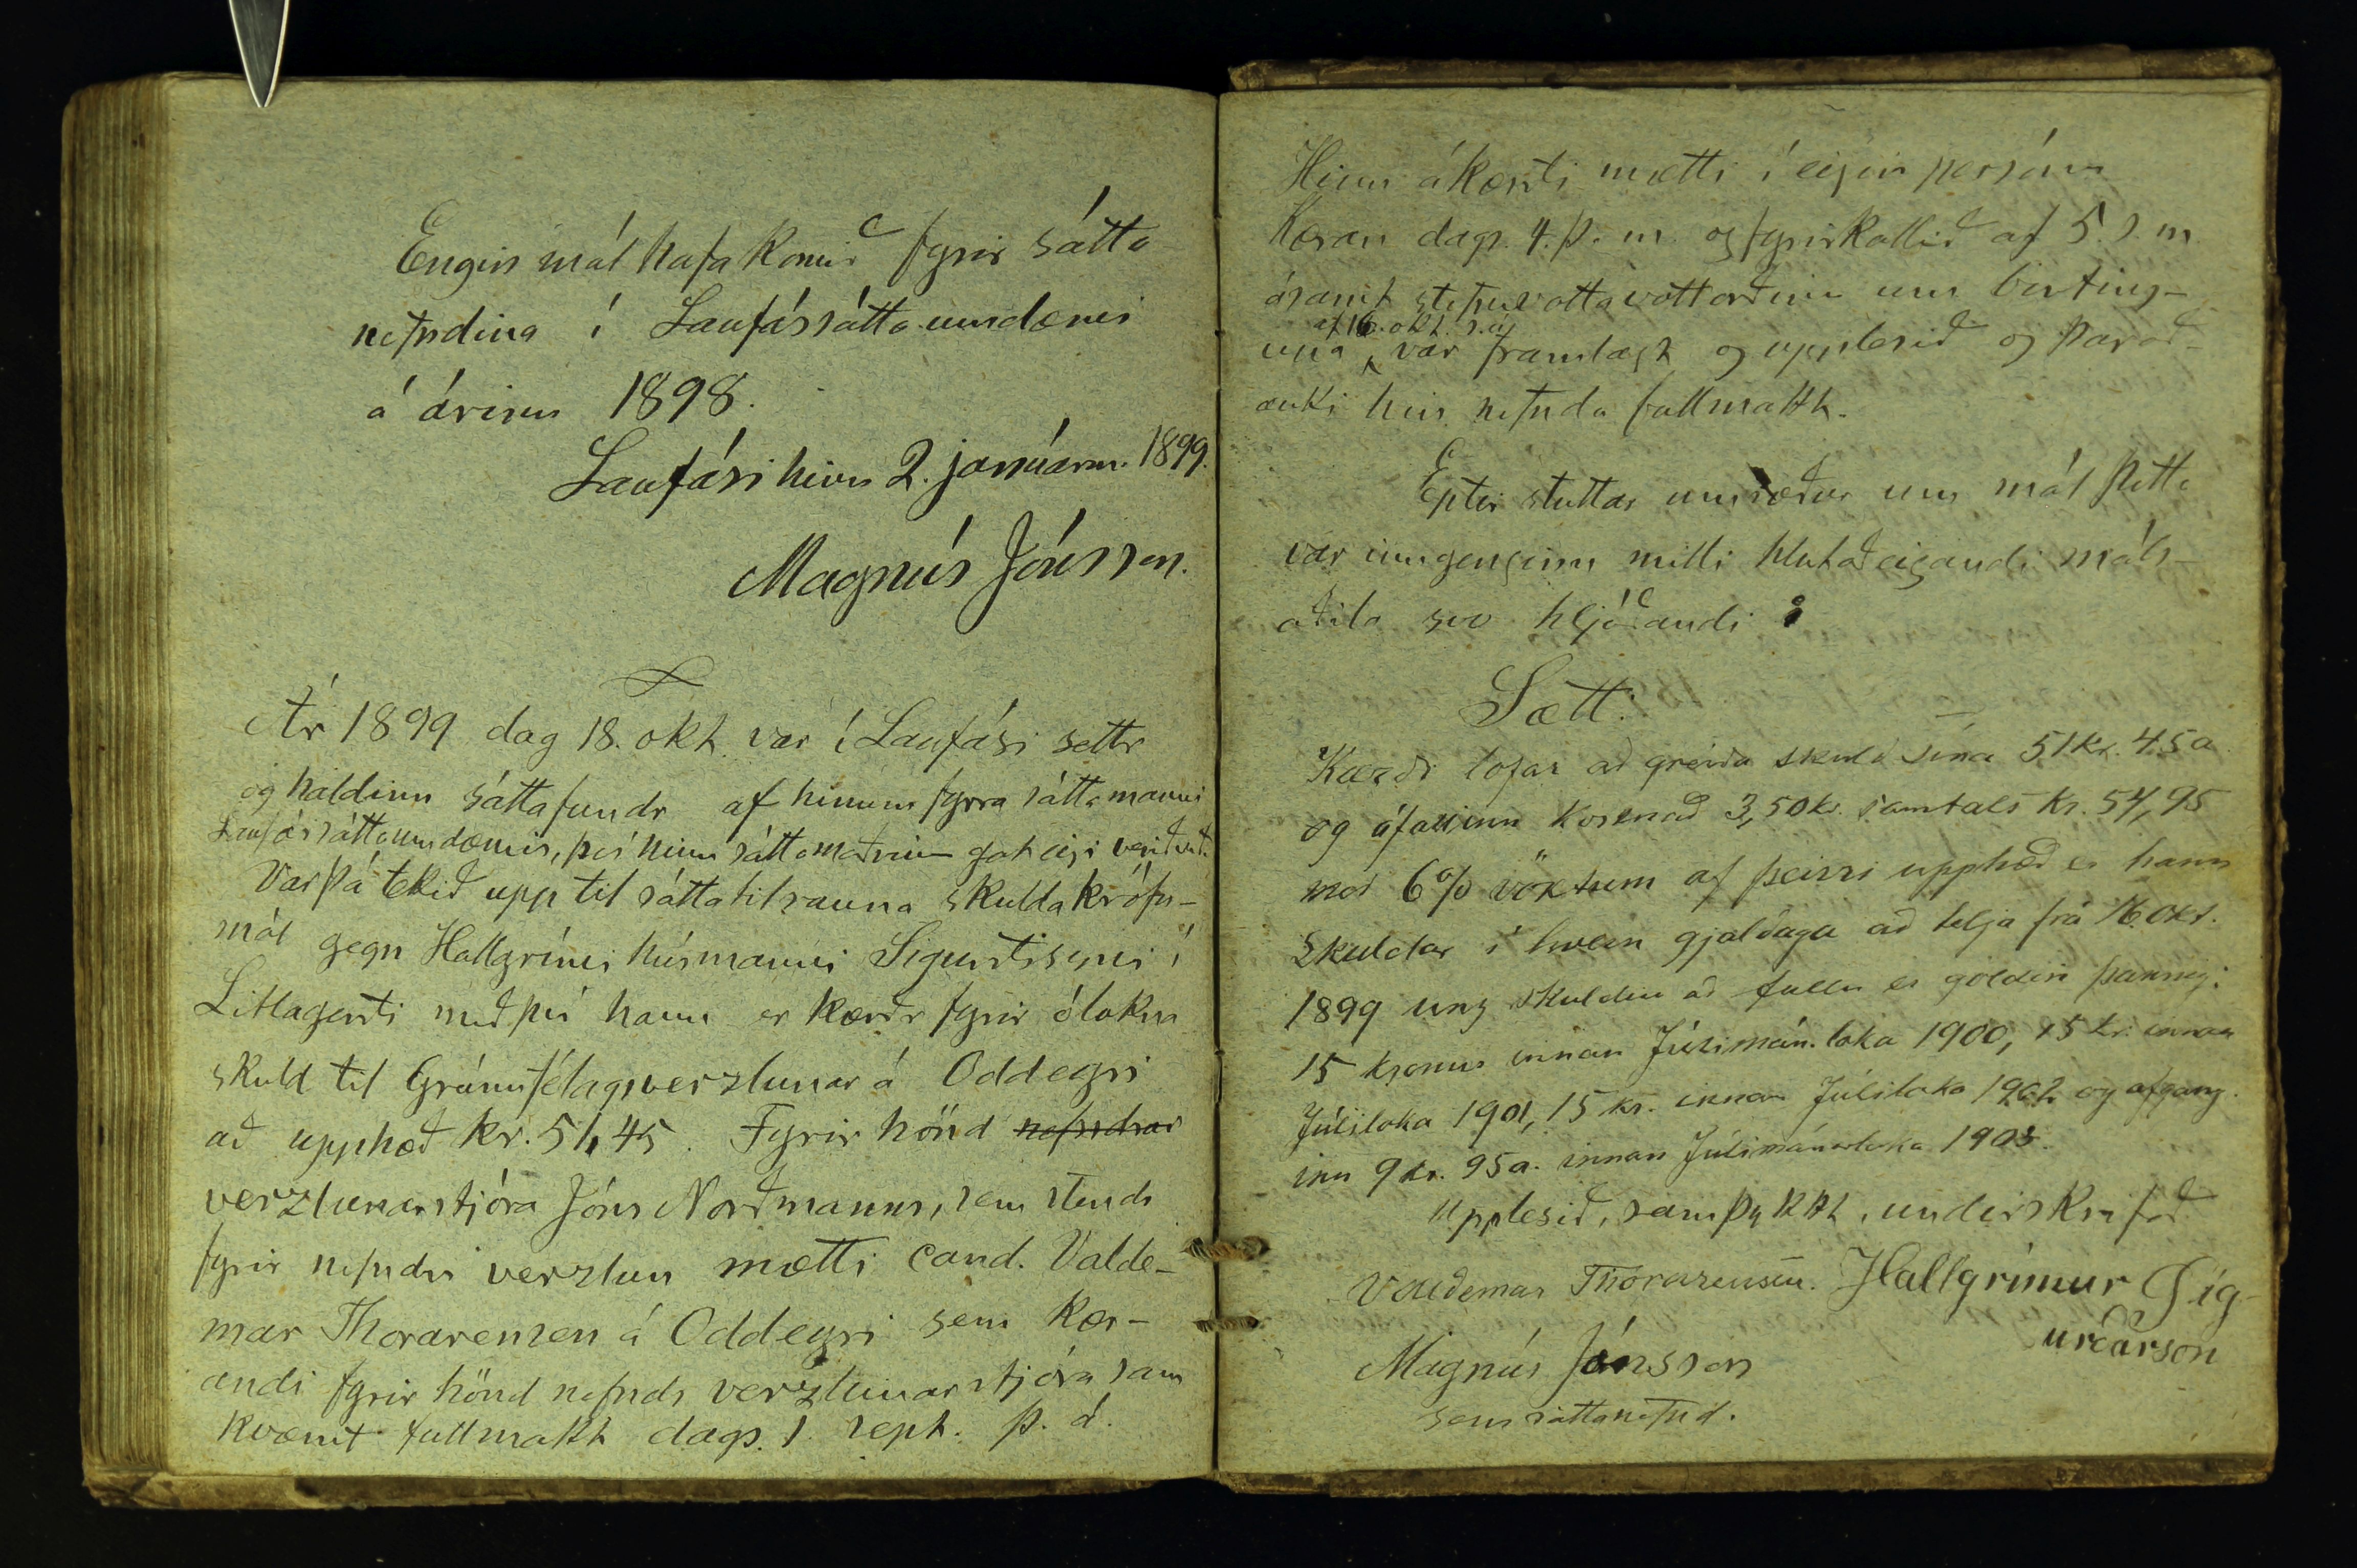 Engin mál hafa komið fyrir sátta
nefndina í Laufássáttaumdæmi
á árinu 1898.
Laufási hinn 2. janúarm. 1899.
Magnús Jónsson.
Ár 1899 dag 18. okt. var í Laufási settr
og haldinn sáttafundr af hinum fyrra sáttamanni
Laufássáttaumdæmis, því hinn sáttamaðrinn gat eigi verið við.
Var þá tekið upp til sáttatilrauna skuldakröfu-
mál gegn Hallgrími húsmanni Sigurðssyni í
Litlagerði með því hann er kærðr fyrir ólokna
skuld til Gránufélagsverzlunar á Oddeyri
að upphæð kr. 51,45. Fyrir hönd nefndrar
verzlunarstjóra Jóns Norðmanns, sem stendr
fyrir nefndri verzlun mætti cand. Valde-
mar Thorarensen á Oddeyri sem kær-
andi fyrir hönd nefnds verzlunarstjóra sam
kvæmt fullmakt dags. 1. sept. þ. á.
Hinn ákærði mætti í eigin persónu
Kæran dags. 4. þ. m. og fyrirkallið af 5. s. m.
ásamt stefnuvottavottorðinu um birting-
af 16. okt. s. á.
una var framlagt og upplesið og þarað-
auki hin nefnda fullmakt.
Eptir stuttar umræður um mál þetta
var inngenginn milli hlutaðeigandi máls-
aðila svo hljóðandi:
Sætt:
Kærði lofar að greiða skuld sína 51 kr. 45 a
og áfallinn kostnað 3,50 kr. samtals kr. 54,95
með 6% vöxtum af þeirri upphæð er hann
skuldar í hvern gjalddaga að telja frá 16. okt.
1899 unz skuldin að fullu er goldin þannig:
15 krónur innan Júlímán. loka 1900, 15 kr. innan
Júlíloka 1901, 15 kr. innan Júlíloka 1902 og afgang-
inn 9 kr. 95 a. innan Júlímánarloka 1903.
Upplesið, samþykkt, undirskrifað
Valdemar Thorarensen. Hallgrímur Sig-
urðarson
Magnús Jónsson
sem sáttanefnd.